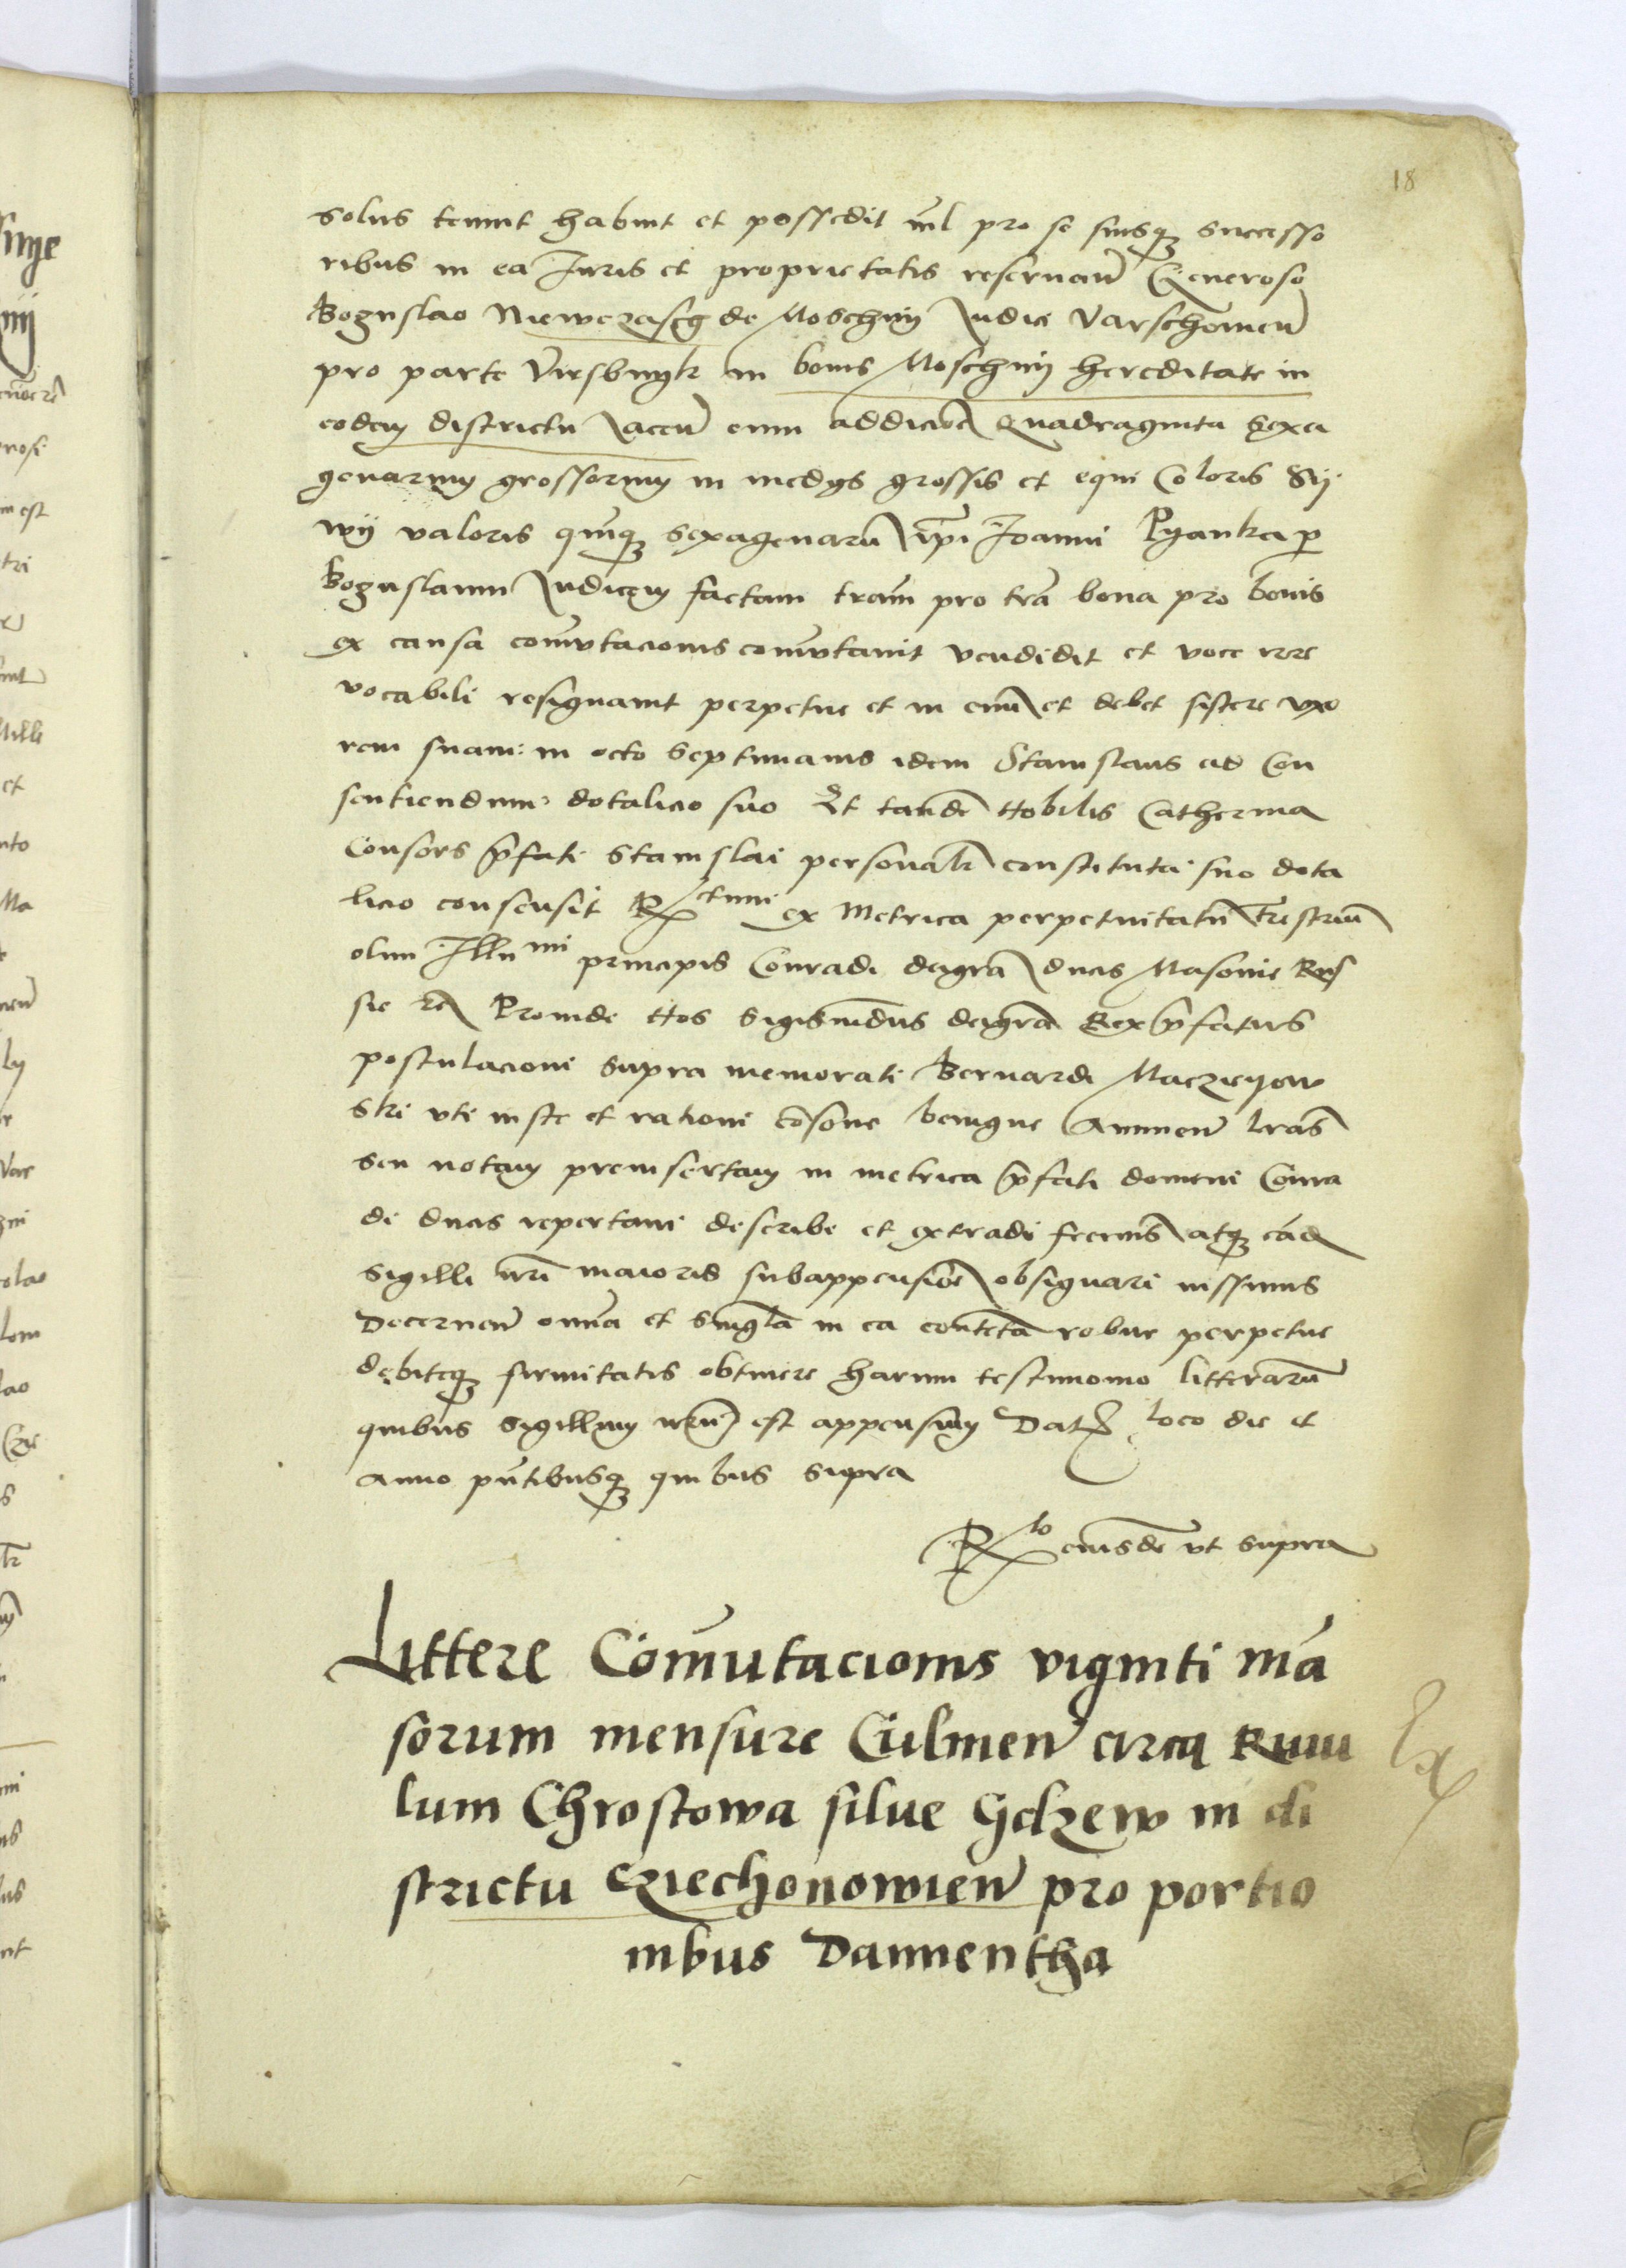 18
solus tenuit habuit et possedit nil pro se suisq successo
ribus in ea Iuris et proprietatis reservan Generoso
Boguslao Niewczasch de Moschny Iudici Varschovien
pro parte Virsbnyk in bonis Moschny hereditate in
eodem districtu iacen cum addicioe Quadraginta sexa
genarum grossorum in medys grossis et equi Coloris Sy
wy valoris quinq sexagenaru ipi Ioanni Pyanka p
Boguslaum Iudicem factam tram pro tra bona pro bonis
ex causa comutacionis comutavit vendidit et voce irre
vocabili resignavit perpetue et in evu et debet sistere vxo
rem suam in octo septimanis idem Stanislaus ad Con
sentiendum dotalicio suo Et tande Nobilis Catherina
Consors pfati Stanislai personalr constituta suo dota
licio consensit Rctum ex Metrica perpetuitatu trestrium
olim Illumi principis Conradi deigra ducis Masovie Rus
sie rc Proinde Nos Sigismudus deigra Rex pfatus
postulacioni supra memorati Bernardi Maczieyow
ski vti iuste et rationi cosone benigne Annuen lras
seu notam preinsertam in metrica pfati domini Conra
di ducis repertam describi et extradi fecimus atq ead
sigilli nri maioris subappensioe obsignari iussimus
Decernen omia et singla in ea conteta robur perpetue
debiteq firmitatis obtinere harum testimonio litteraru
quibus sigillum nrum est appensum Dat loco die et
Anno pntibusq quibus supra
Rlo eiusde vt supra
Littere Comutacionis viginti ma
sorum mensure Culmen circa Rivu
lum Chrostowa silve Gdzew in di
strictu Cziechonowien pro portio
nibus Dannentha